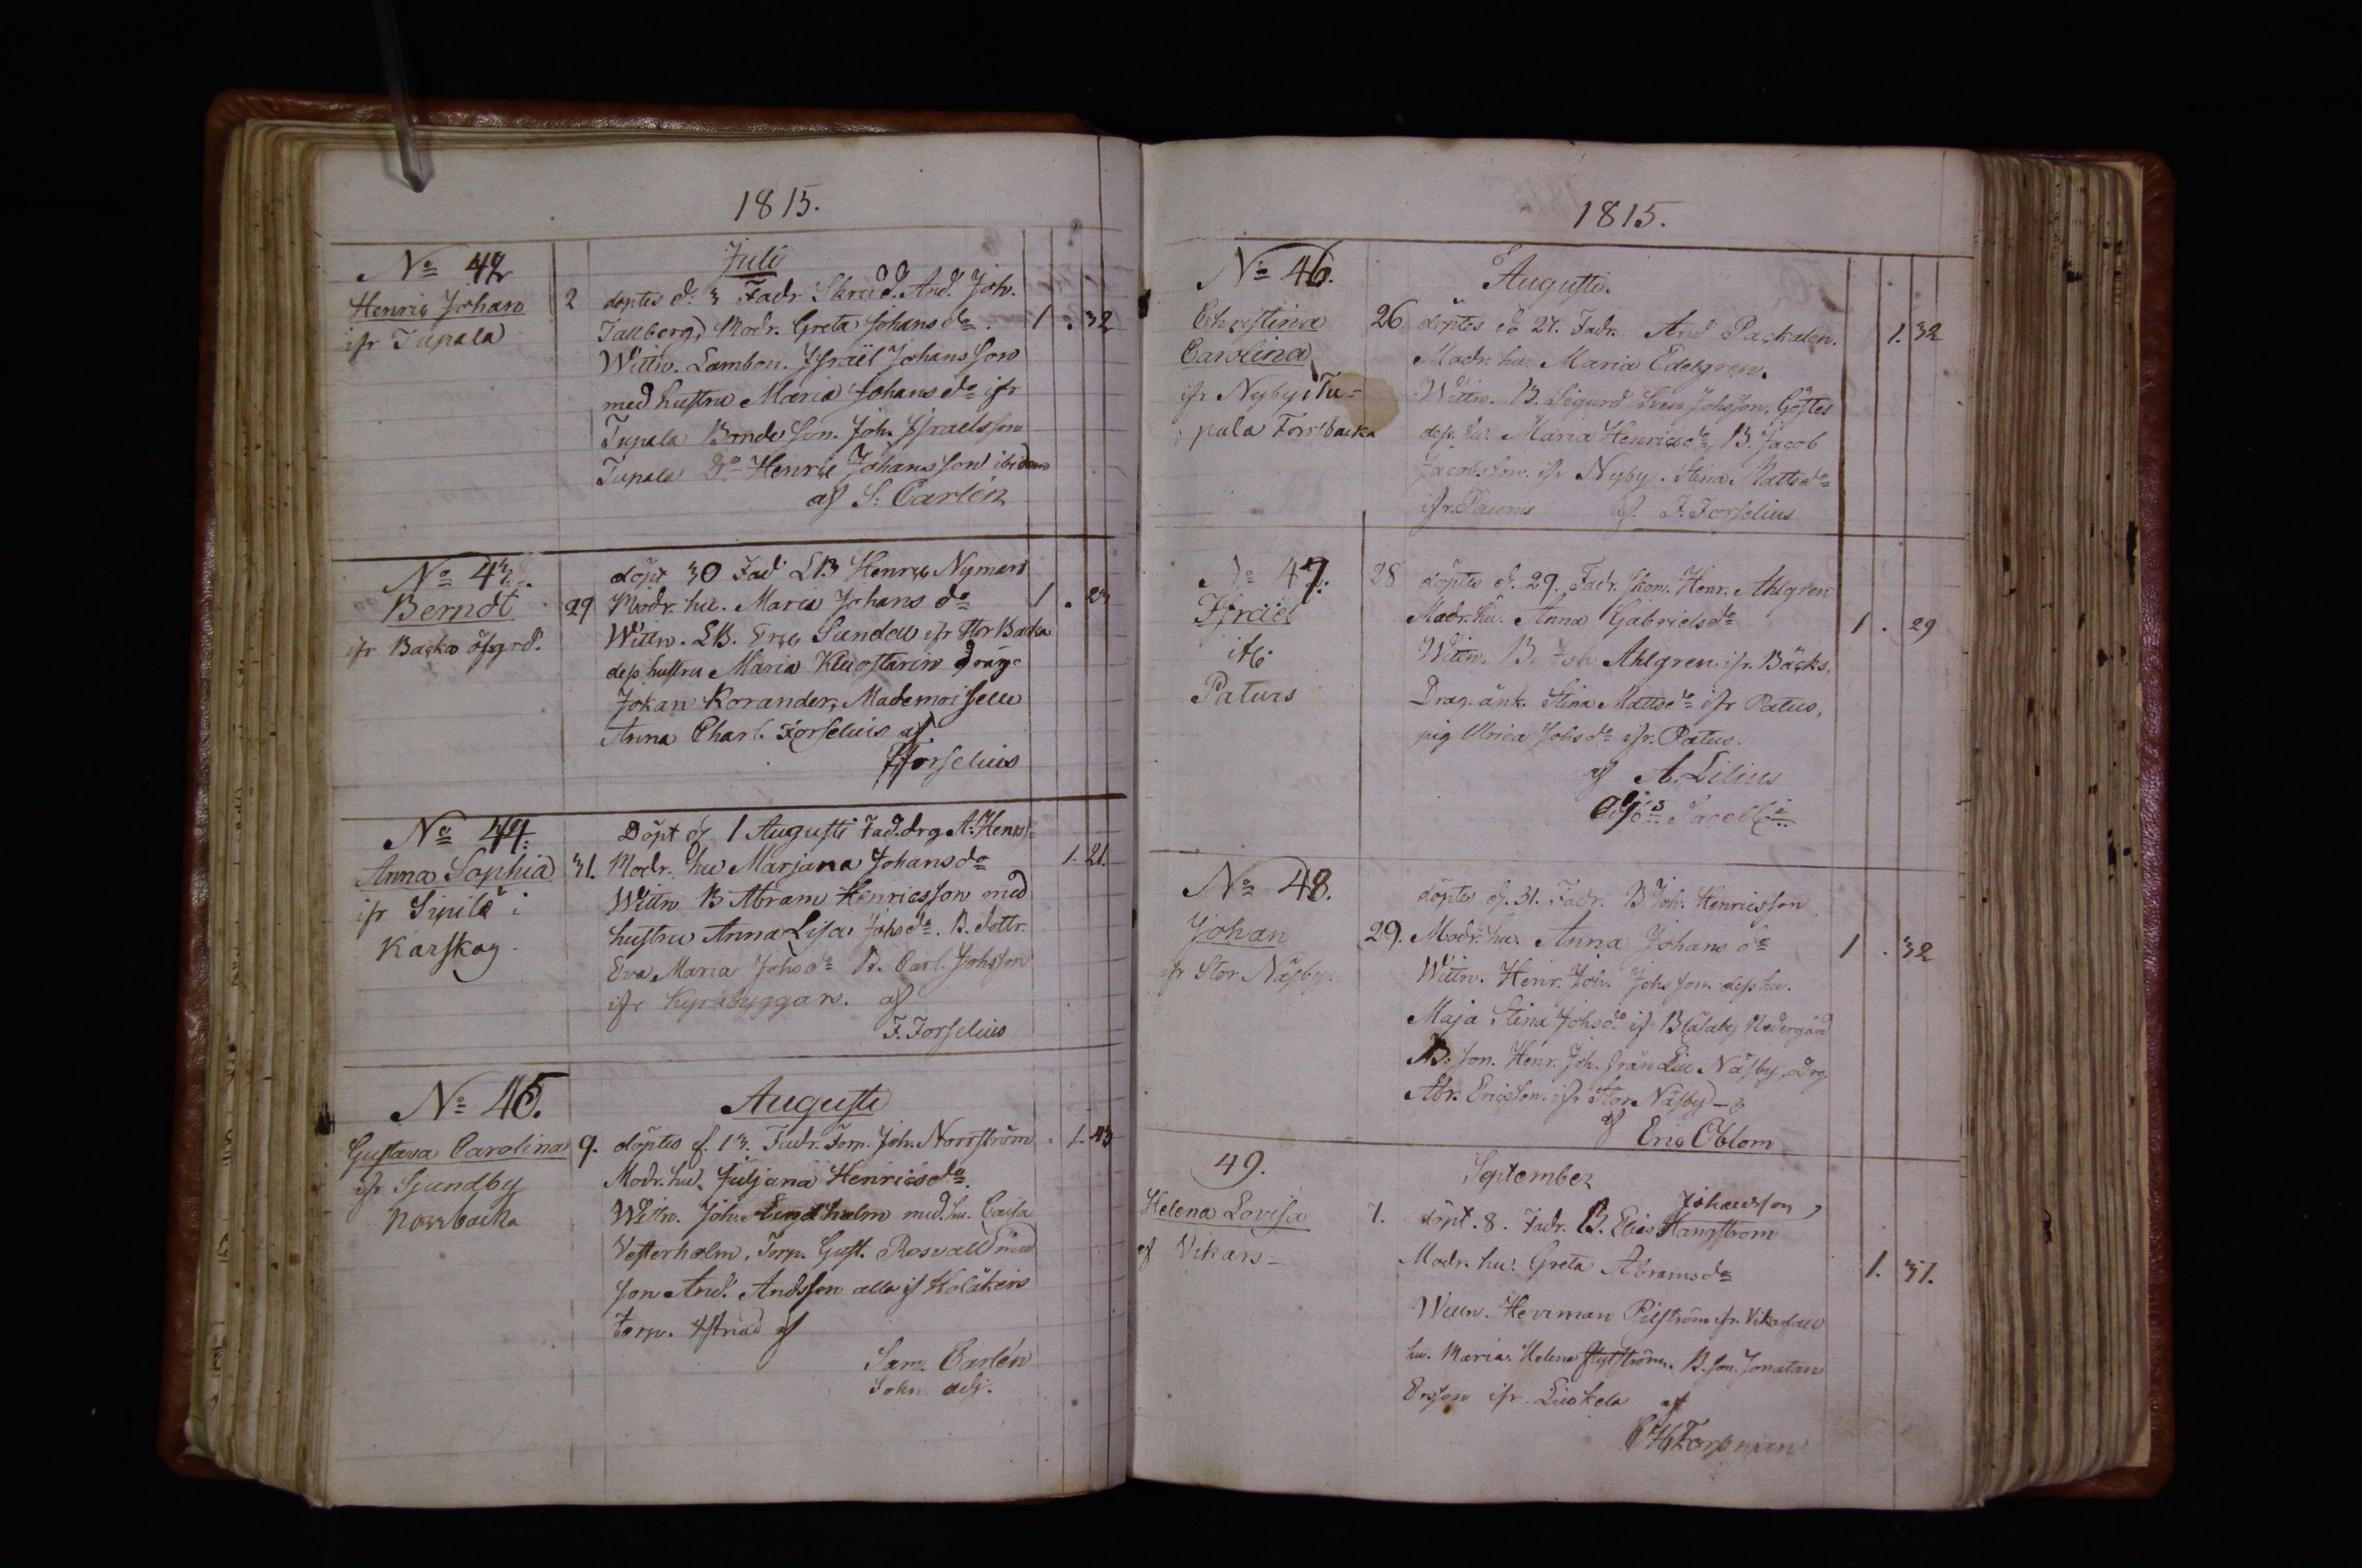 1815.
No 42
Juli
Henric Johan
ifr Tupala
2
döptes d. 3 Fadr Skrädd. And. Joh.
Tallberg, Modr. Greta Johans do
1 . 32
Wittn. Lambon. Israël Johansson
med hustru Maria Johansdo ifr
Tupala Bonde Son. Joh. Israelsson
Tupala Do Henric Johansson ibidem
af S: Carlén
No 43.
Berndt
ifr Backa öfgrd.
29
döpt 30 Fad LB Henric Nyman
Modr. hu. Maria Johans do
1 . 23
Wittn. LB. Eric Sundell ifr Stor Backa
dess hustru Maria Dräng
Johan Korander, Mademoiselle
Anna Charl. Forselius af
FForselius
No 44.
Anna Sophia
ifr Sipilä i
Karskog
31.
Döpt d 1 Augusti Fad. drg A: Henrss:
Modr. hu Marjana Johansdo
1. 21.
Wittn B Abram Henricsson med
hustru Anna Lisa Johsdo. B. dottr.
Eva Maria Johsdo B. Carl. Johsson
ifr Kyrkbyggan. af
F. Forselius
No 45.
Augusti
Gustava Carolina
ifr Sjundby
Norrbacka
9.
döptes d. 13. Fadr. Torp. Joh. Norrström
1. 43
Modr. hu. Juljana Henricsdo.
Wittn. Joh. Lindholm med. hu. Caisa
Vesterholm, Torp. Gust. Rosvall med
son And. Andsson alla if
torp. af
Sam. Carlén
Sokn. adj.
1815.
No 46.
Augusti.
Christina
Carolina
ifr Nyby i Tu-
pala Forssbacka
26.
döptes do 27. Fadr. And Packalen.
1. 32
Modr. hu. Maria Edelgren.
Wittn. B. Sigurd Sven Johsson, Göstes
dess. hu. Maria Henricsdo, B. Jacob
Jacobsson. ifr Nyby. Stina Mattsdo
ifr. Paunis af. F. Forselius
No 47.
Israel
Paturs
28
döptes d. 29. Fadr. Skom. Henr. Ahlgren
Modr. hu. Anna Gabrielsdo
1 . 29
Wittn. B. Joh Ahlgren ifr. Bäcks,
Drag. änk. Stina Mattsdo ifr Patus,
pig Ulrica Johsdo ifr. Patus.
af A. Lilius
No 48.
Johan
ifr Stor Näsby.
29.
döptes d. 31. Fadr. B. Joh. Henricsson
Modr. hu. Anna Johans do
1 . 32
Wittn. Henr. Joh. Johsson. dess hu.
Maja Stina Johsdo if Blåsaby Nedergård
B: son. Henr. Joh. från Lill Näsby, Drg.
Abr. Ericsson. ifr Stor Näsby
af Eric Oblom
49.
September
Helena Lovisa
af Vikars
7.
Johansson,
döpt. 8. Fadr. B. Elias Hangström
Modr. hu. Greta Abramsdo
1. 37.
Wittn. Herrman Pilström ifr.
hu. Maria. Helena B. son. Jonatan
Ersson ifr. Liuskela af